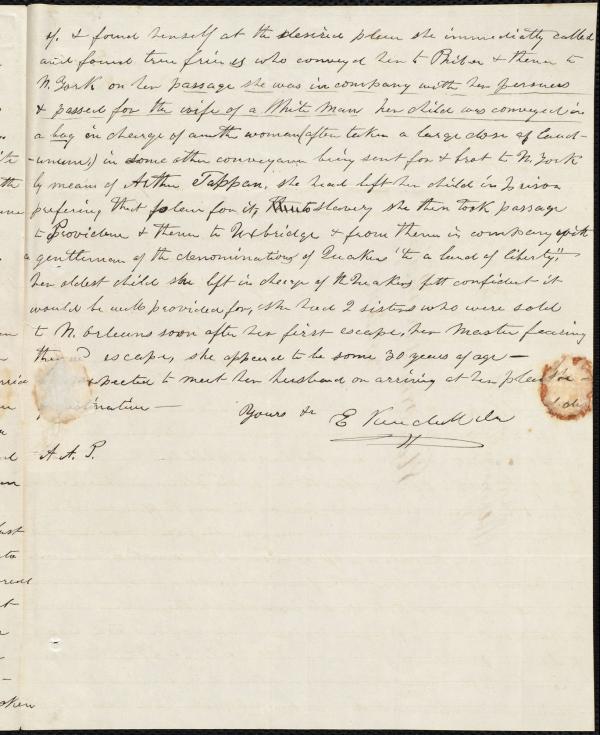 y. & found herself at the desired place she immediately called
and found true friends who conveyed her to Phila & thence to
N. York on her passage she was in company with her persuers
& passed for the wife of a White man her child was conveyed in
a bag in charge of another woman (after taken a large dose of laud-
-unum,) in some other conveyance being sent for & brot to N. York
by means of Arthur Tappan, she had left her child in prison
prefering that place for it, to slavery she then took passage
to Providence & thence to Uxbridge & from thence in company with
a gentleman of the denomination of Quakers "to a land of liberty",
her oldest child she left in charge of the Quakers felt confident it
would be well provided for, she had 2 sisters who were sold
to N. Orleans soon after her first escape, her Master fearing
their escape, she appeared to be some 30 years of age —
expected to meet her husband on arriving at her place
destination — Yours &c E
A A. P.